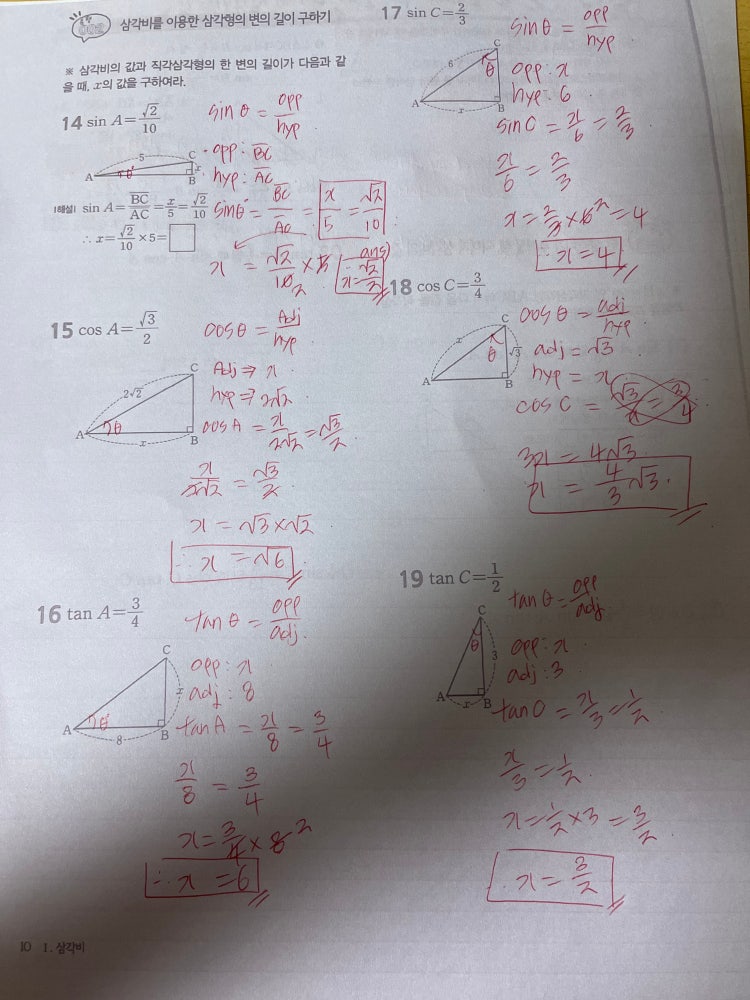 002 삼각비를 이용한 삼각형의 변의 길이 구하기
※ 삼각비의 값과 직각삼각형의 한 변의 길이가 다음과 같
을 때, x의 값을 구하여라.
14 sin A=√2/10
sinθ = opp/hyp
5
A θ C x B
• opp: BC
hyp: AC
|해설| sin A=BC/AC=x/5=√2/10
∴ x=√2/10×5=□
sinθ = BC/AC = x/5 = √2/10
x = √2/10 × 5
2
ans)
∴ x=√2/2
15 cos A=√3/2
cosθ = Adj/hyp
2√2
A θ C B x
Adj ⇒ x
hyp ⇒ 2√2
cosA = x/2√2 = √3/2
x/2√2 = √3/2
x = √3×√2
∴ x = √6
16 tan A=3/4
tanθ = opp/adj
A θ C x B 8
opp: x
adj: 8
tanA = x/8 = 3/4
x/8 = 3/4
x = 3/4 × 8 2
∴ x = 6
10 1. 삼각비
17 sin C=2/3
sinθ = opp/hyp
6
A C θ B x
opp: x
hyp: 6
sinC = x/6 = 2/3
x/6 = 2/3
x = 2/3 × 6 2 = 4
∴ x = 4
18 cos C=3/4
cosθ = adj/hyp
x
A C θ √3 B
adj = √3
hyp = x
cos C = √3/x = 3/4
3x = 4√3
x = 4/3 √3
19 tan C=1/2
tanθ = opp/adj
A C θ 3 B x
opp: x
adj: 3
tanC = x/3 = 1/2
x/3 = 1/2
x = 1/2 × 3 = 3/2
x = 3/2